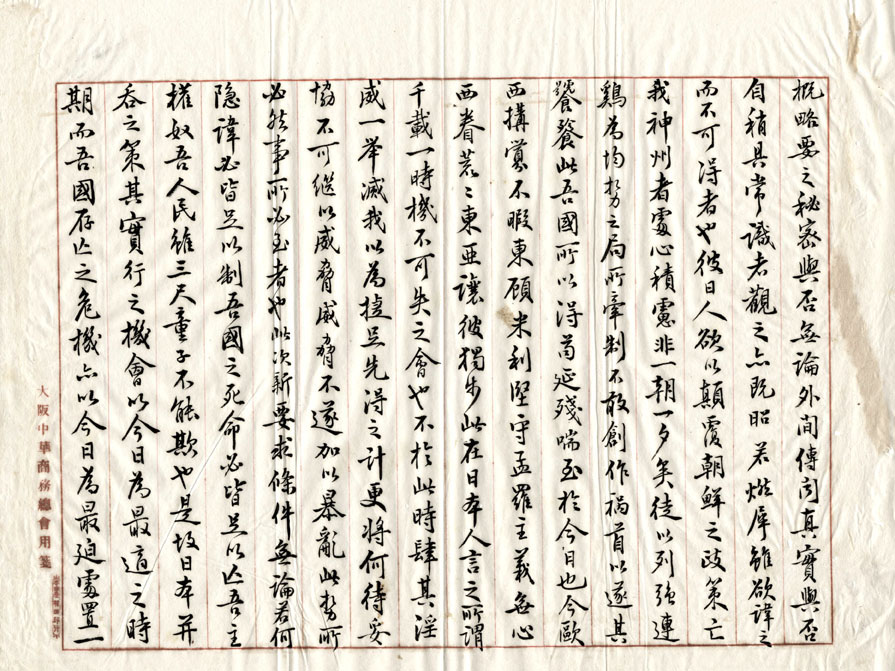 概略要之秘密與否無論外間傳聞真實與否
自稍具常識者觀之亦既昭若燃犀雖欲諱之
而不可得者也彼日人欲以顛覆朝鮮之政策亡
我神州者處心積慮非一朝一夕矣徒以列强連
鷄為均勢之局所牽制不敢創作禍首以遂其
饕餮此吾國所以得苟延殘喘至於今日也今歐
西搆釁不暇東顧米利堅守孟羅主義無心
西眷茫々東亜讓彼獨步此在日本人言之所謂
千載一時機不可失之會也不於此時肆其淫
威一举滅我以為捷足先得之計更將何待妥
協不可継以威脅威脅不遂加以暴亂此勢所
必然事所必至者也此次新要求條件無論若何
隐諱必皆足以制吾國之死命必皆足以亡吾主
權奴吾人民雖三尺童子不能欺也是故日本并
吞之策其實行之機會以今日為最適之時
期而吾國存亡之危機亦以今日為最迫處置一
大阪中華商務總會用箋